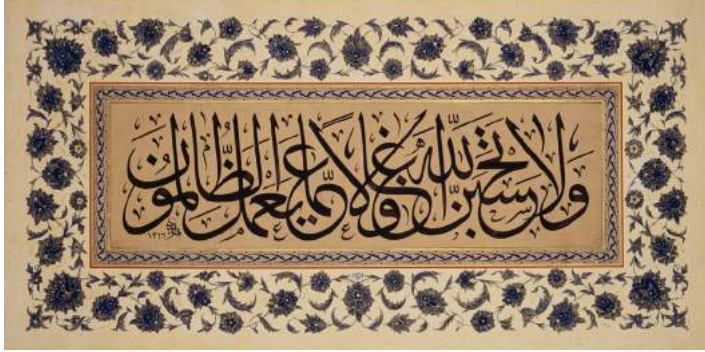 وَلَا تَحْسَبَنَّ اللّٰهَ غَافِلًا عَمَّا يَعْمَلُ الظَّالِمُونَ
١٣١٦